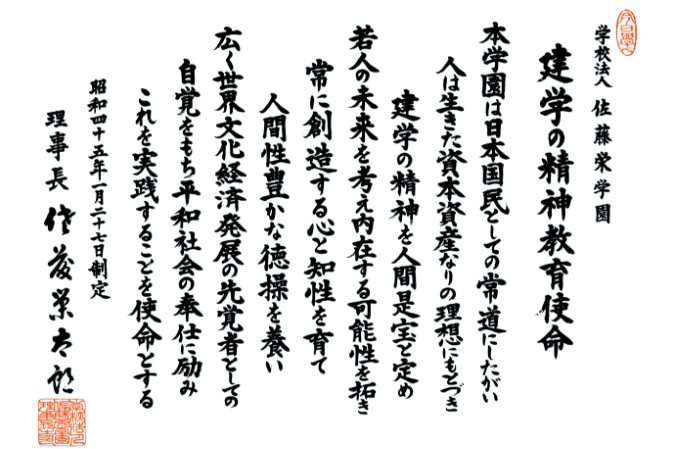 学校法人 佐藤栄学園
建学の精神教育使命
本学園は日本国民としての常道にしたがい
人は生きた資本資産なりの理想にもとづき
建学の精神を人間是宝と定め
若人の未来を考え内在する可能性を拓き
常に創造する心と知性を育て
人間性豊かな徳操を養い
広く世界文化経済発展の先覚者としての
自覚をもち平和社会の奉仕に励み
これを実践することを使命とする
昭和四十五年一月二十七日制定
理事長 佐藤栄太郎